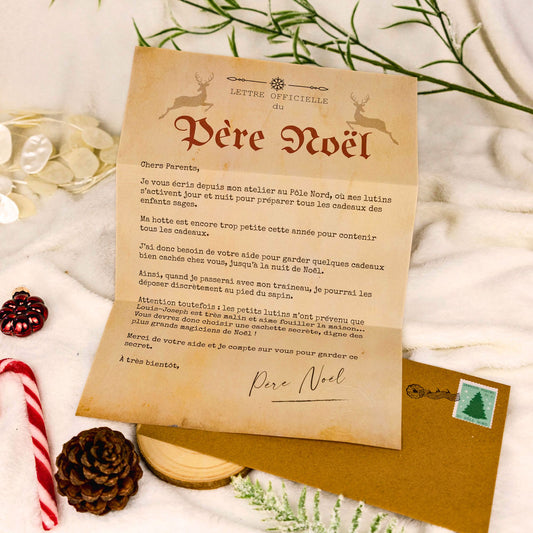 LETTRE OFFICIELLE
du
Père Noël
Chers Parents,
Je vous écris depuis mon atelier au Pôle Nord, où mes lutins
s'activent jour et nuit pour préparer tous les cadeaux des
enfants sages.
Ma hotte est encore trop petite cette année pour contenir
tous les cadeaux.
J'ai donc besoin de votre aide pour garder quelques cadeaux
bien cachés chez vous, jusqu'à la nuit de Noël.
Ainsi, quand je passerai avec mon traineau, je pourrai les
déposer discrètement au pied du sapin.
Attention toutefois : les petits lutins m'ont prévenu que
Louis-Joseph est très malin et aime fouiller la maison...
Vous devrez donc choisir une cachette secrète, digne des
plus grands magiciens de Noël !
Merci de votre aide et je compte sur vous pour garder ce
secret.
À très bientôt,
Père Noël